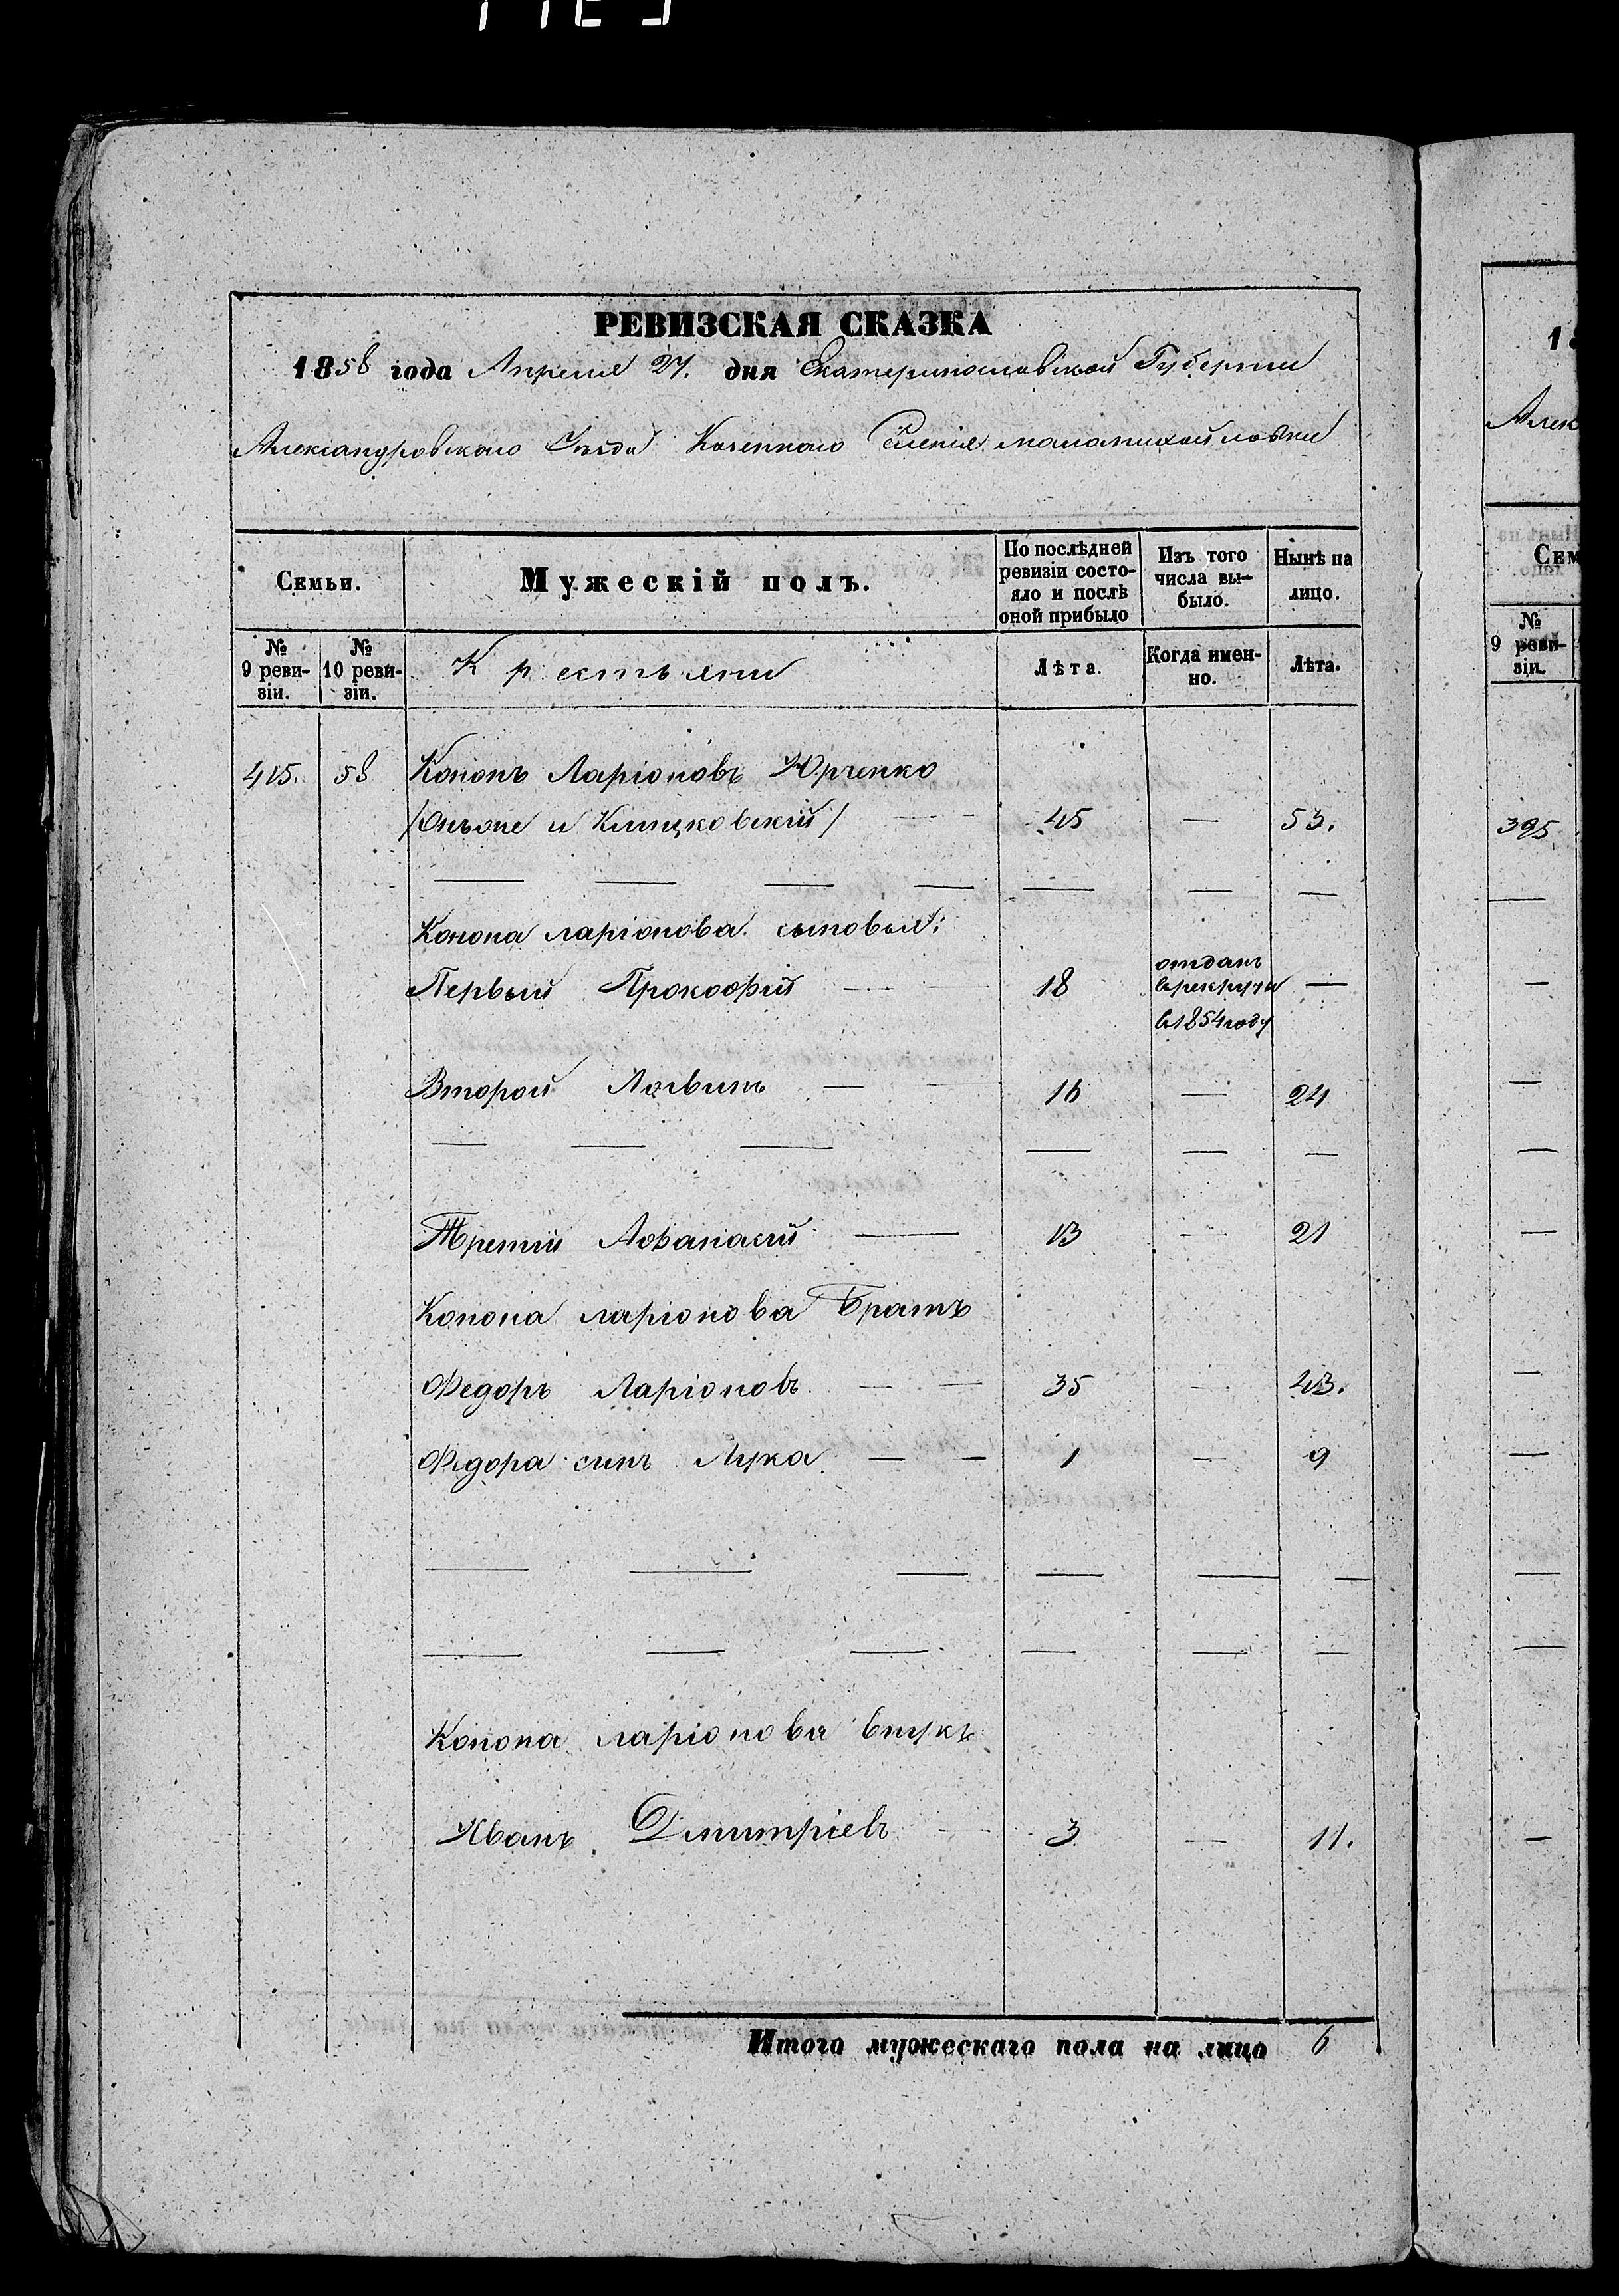 РЕВИЗСКАЯ СКАЗКА
1858 года Апреля 27. дня Екатеринославской Губернии
Александровского Уезда Казенного Селения малатихайловки
Семьи.
Мужескій полъ.
По послѣдней ревизіи состояло и послѣ оной прибыло
Изъ того числа выбыло.
Нынѣ на лицо.
№ 9 ревизіи.
№ 10 ревизіи.
Крестьяни
Лѣта.
Когда именно.
Лѣта.
415. 58 Кононъ Ларіоновъ Юрченко
/Онъже и Клицковскій/ 45 — 53.
Конона ларіонова сыновья:
Первый Прокофій 18 отданъ —
врекруты
в1854году
Второй Логвинъ — 16 — 24
Третій Афанасий — 13 — 21
Конона ларіонова Братъ
Федоръ Ларіоновъ — — 35 — 43.
Федора синъ Лука — — 1 — 9
Конона ларіонова внукъ
Иванъ Дмитріевъ — 3 — 11.
Итого мужескаго пола на лицо 6
Алек
Сем
№ 9 ревизіи.
395